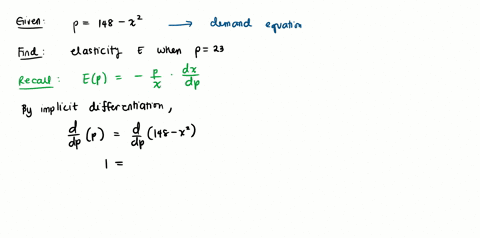 Given: p = 148 - x² → demand equation
Find: elasticity E when p = 23
Recall: E(p) = - p/x · dx/dp
By implicit differentiation,
d/dp (p) = d/dp (148 - x²)
1 =